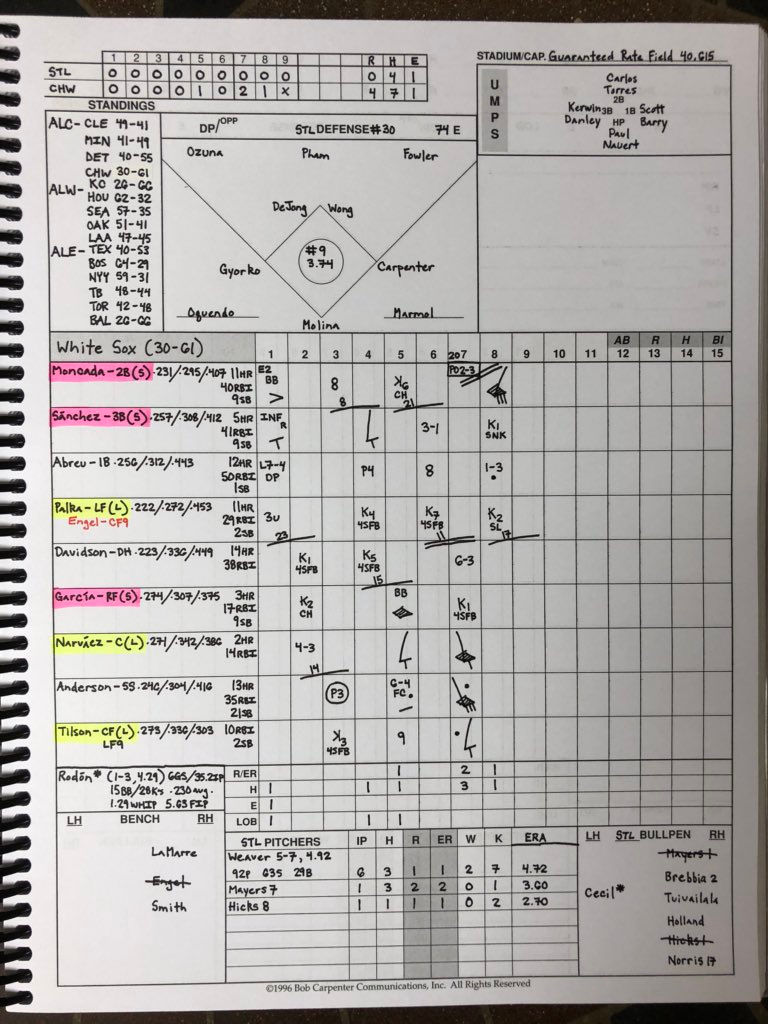 1 2 3 4 5 6 7 8 9 R H E
STL 0 0 0 0 0 0 0 0 0 0 4 1
CHW 0 0 0 0 1 0 2 1 x 4 7 1
STADIUM/CAP. Guaranteed Rate Field 40,615
UMPS
Carlos
Torres
2B
Kerwin 3B 1B Scott
Danley HP Barry
Paul
Nauert
STANDINGS
ALC- CLE 49-41
MIN 41-49
DET 40-55
CHW 30-61
ALW- KC 26-66
HOU 62-32
SEA 57-35
OAK 51-41
LAA 47-45
ALE- TEX 40-53
BOS 64-29
NYY 59-31
TB 48-44
TOR 42-48
BAL 26-66
DP/OPP STL DEFENSE #30 74 E
Ozuna Pham Fowler
DeJong Wong
#9
3.74
Gyorko Carpenter
Oquendo Marmol
Molina
White Sox (30-61) 1 2 3 4 5 6 207 8 9 10 11 AB 12 R 13 H 14 BI 15
Moncada-2B(S) .231/.295/.407 11HR E2 8 K6 PO2-3
40RBI BB CH
9SB 8 21
Sánchez-3B(S) .257/.308/.412 5HR INF 3-1 K1
41RBI R SNK
9SB
Abreu-1B .256/.312/.443 12HR L7-4 P4 8 1-3
50RBI DP
1SB
Palka-LF(L) .222/.272/.453 11HR 3u K4 K7 K2
Engel-CF9 29RBI 4SFB 4SFB SL
2SB 23 11 17
Davidson-DH .223/.336/.449 14HR K1 K5 6-3
38RBI 4SFB 4SFB
15
García-RF(S) .274/.307/.375 3HR K2 BB K1
17RBI CH 4SFB
9SB
Narváez-C(L) .271/.342/.386 2HR 4-3
14RBI
14
Anderson-SS .246/.304/.416 13HR P3 6-4
35RBI FC
21SB
Tilson-CF(L) .273/.336/.303 10RBI K3 9
LF9 2SB 4SFB
Rodón* (1-3, 4.29) 6GS/35.2IP R/ER 1 2 1
15BB/28Ks .230avg. H 1 1 1 3 1
1.29 WHIP 5.63 FIP E 1
LOB 1 1 1
LH BENCH RH
LaMarre
Engel
Smith
STL PITCHERS IP H R ER W K ERA
Weaver 5-7, 4.92
92p 63S 29B 6 3 1 1 2 7 4.72
Mayers 7 1 3 2 2 0 1 3.60
Hicks 8 1 1 1 1 0 2 2.70
LH STL BULLPEN RH
Mayers 1
Brebbia 2
Cecil*
Tuivailala
Holland
Hicks 1
Norris 17
©1996 Bob Carpenter Communications, Inc. All Rights Reserved